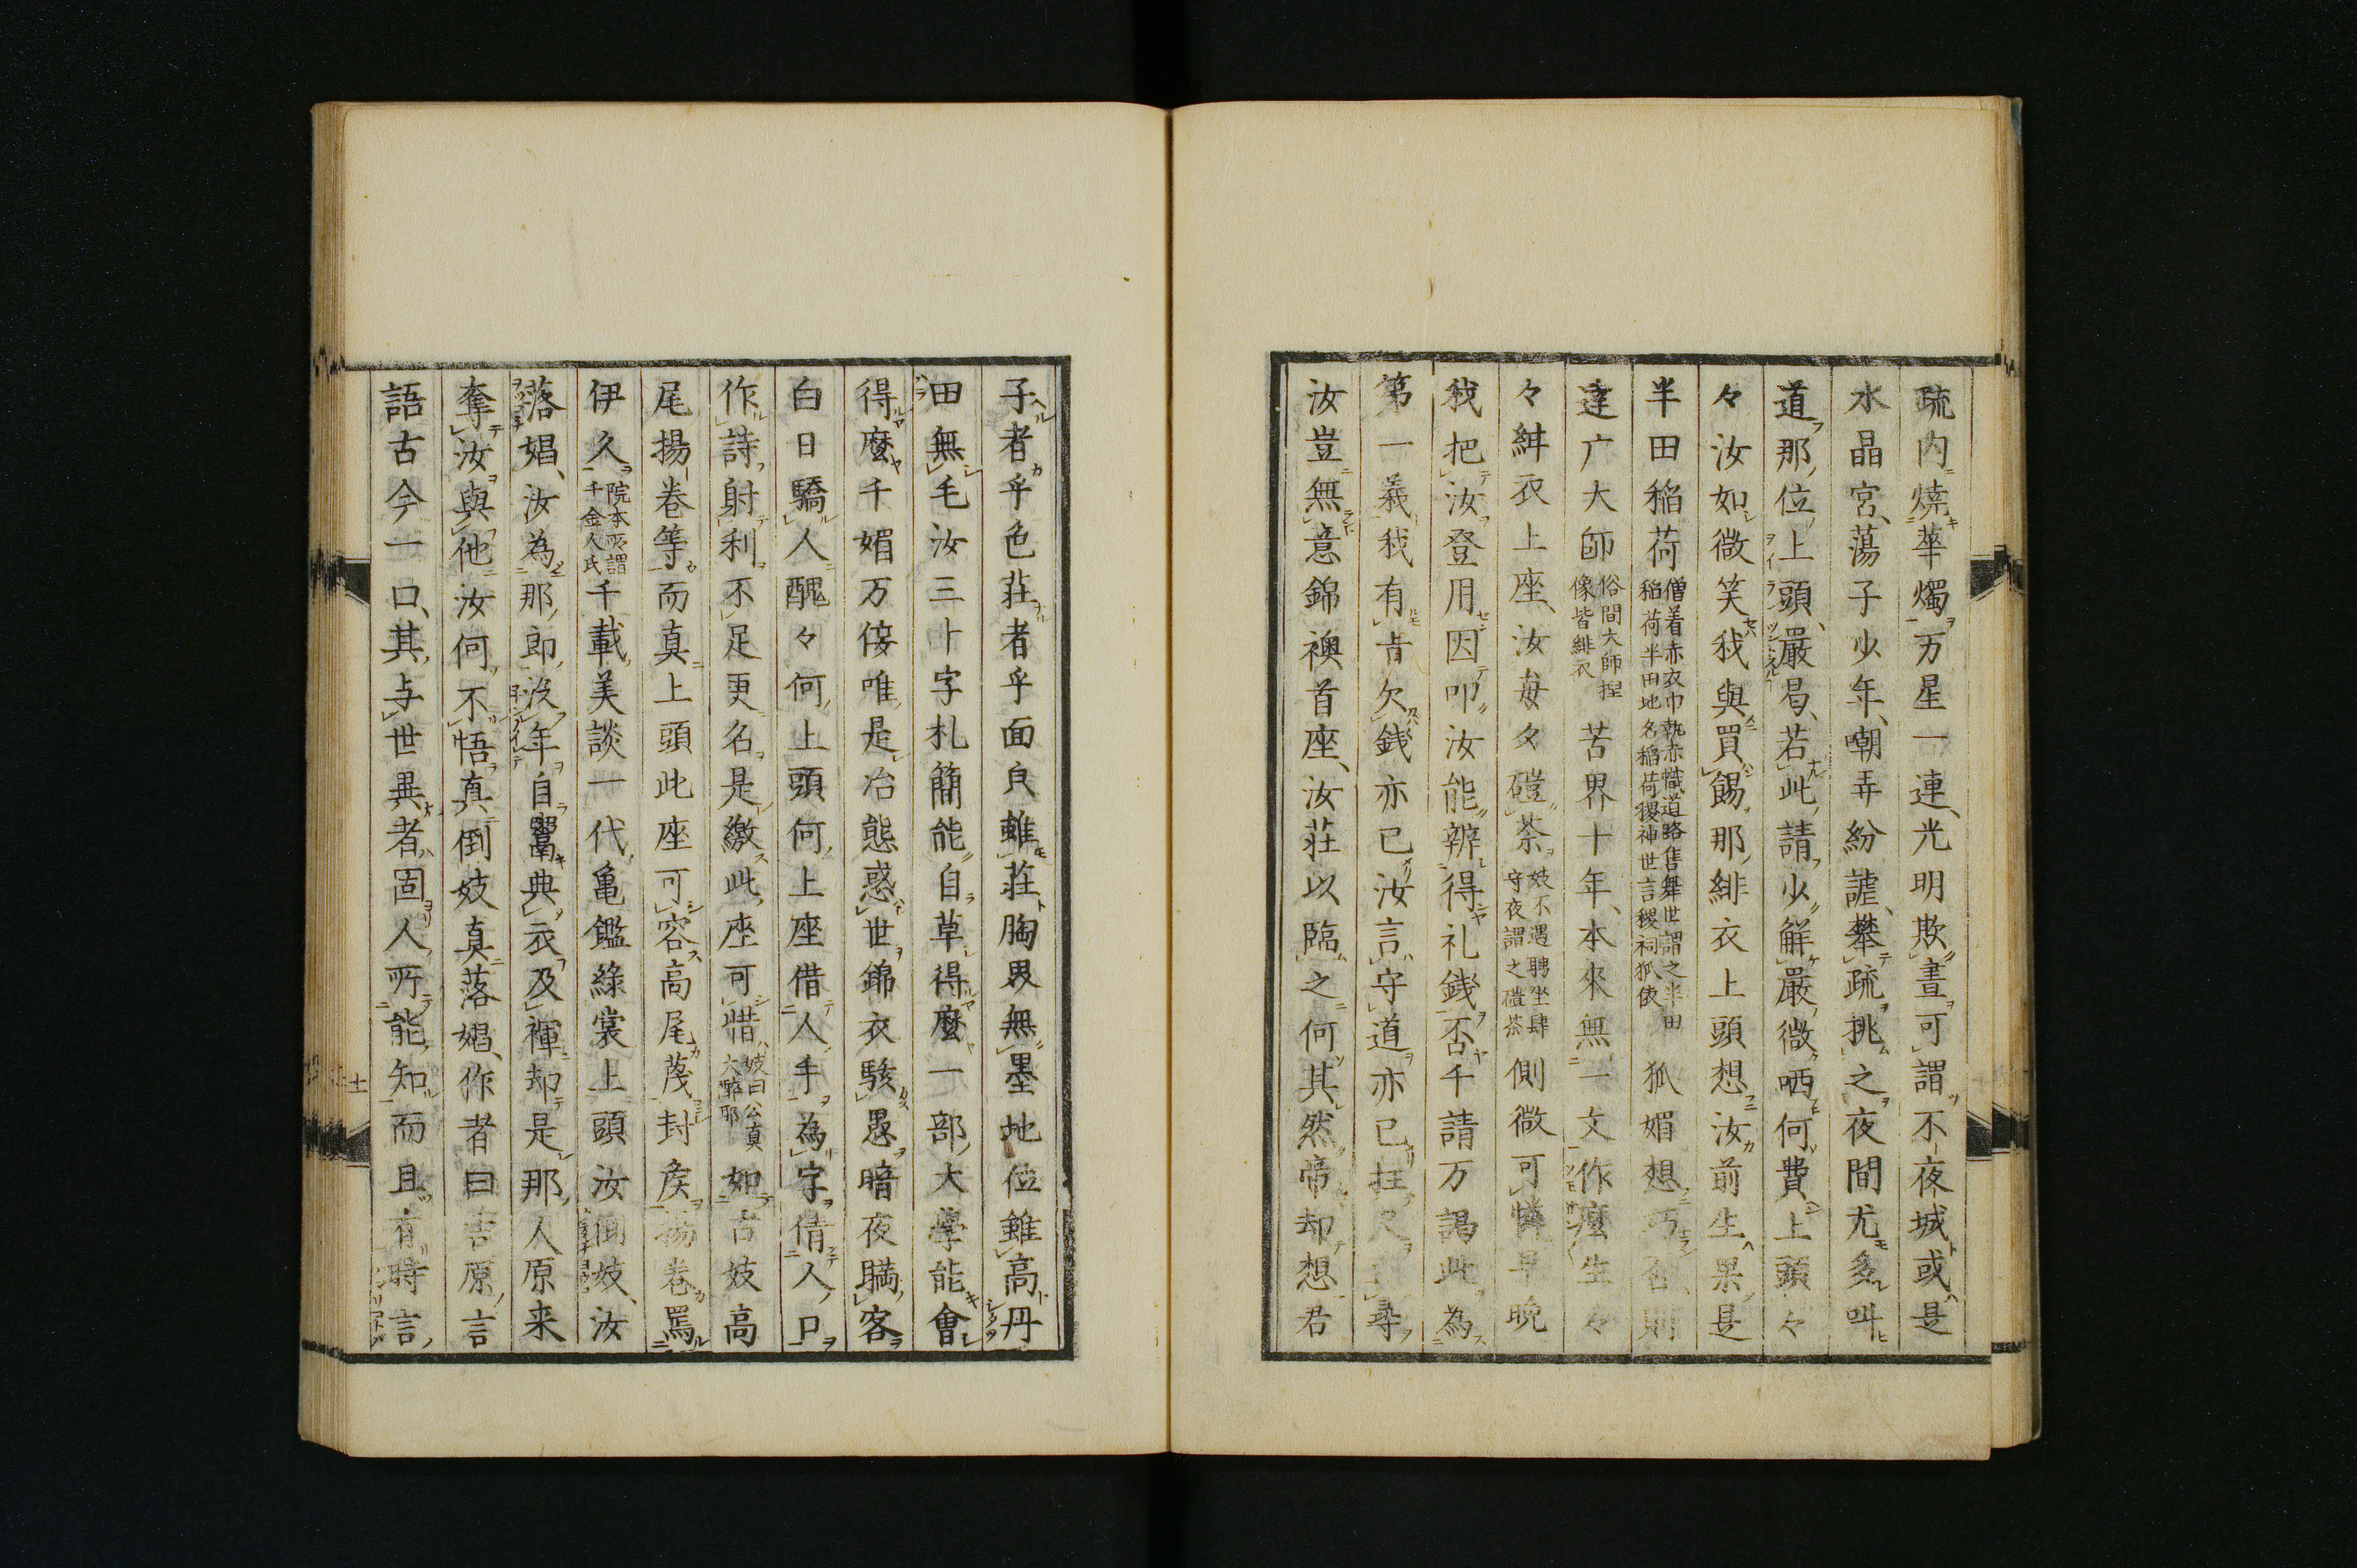 疏内燒華燭万星一連、光明欺晝可謂不夜城或是
水晶宮、蕩子少年、嘲弄紛謔、攀疏挑之夜間尤多叫
道那位上頭、嚴曷、若此請少解嚴微哂何費上頭々
々汝如微笑我與買餳那緋衣上頭想汝前生果是
半田稲荷僧着赤衣巾執赤幟道路售舞世謂之半田稲荷半田地名稲荷稷神世言稷祠狐依狐媚想則
達广大師俗間大師捏像皆緋衣苦界十年、本來無一文作麼生々
々緋衣上座、汝毎夕磑茶妓不遇聘坐肆守夜謂之磑茶側微可憐早晩
我把汝登用因叩汝能辨得礼銭否千請万謁此為
第一義我有肯欠銭亦已汝言守道亦已枉尋
汝豈無意錦襖首座、汝荘以臨之何其然帝却想君
子者乎色荘者乎面良雖荘胸界無墨地位雖高丹
田無毛汝三十字札簡能自草得麼一部大學能會
得麼千媚万佞唯是冶態惑世錦衣駭愚暗夜瞞客
白日驕人醜々何上頭何上座借人手為字倩人口
作詩射利不足更名是繳此座可惜妓曰公真大醉耶如古妓高
尾揚卷等而真上頭此座可容高尾蔑封矦揚卷罵
伊久院本所謂千金久氏千載美談一代亀鑑綠裳上頭汝倒妓、汝
落娼、汝為那郎沒年自鬻典衣及褌却是那人原来
奪汝與他汝何不悟真倒妓真落娼、作者曰吉原言
語古今一口、其与世異者固人所能知而且有時言
十一